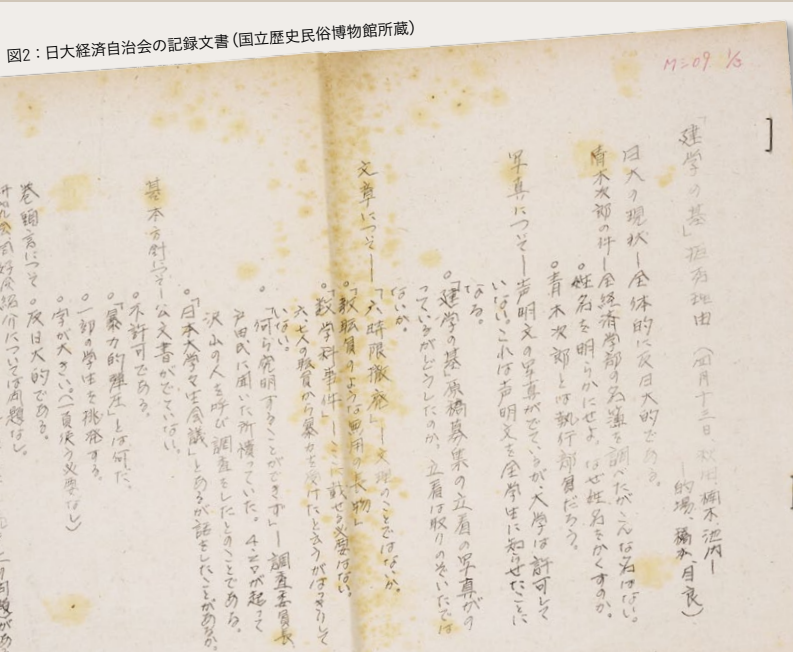 図2：日大経済自治会の記録文書(国立歴史民俗博物館所蔵)
「建学の基」拒否理由 (四月十三日 秋田、楠木、池内ー
ー的場、橋本、目良)
日大の現状ー全体的に反日大的である。
青木次郎の件ー全経済学部の名簿を調べたがこんな名はない。
○姓名を明らかにせよ。なぜ姓名をかくすのか。
○青木次郎とは執行部員だろう。
写真についてー声明文の写真がでているが大学は許可して
いない。これは声明文を全学生に知らせたことに
なる。
○「建学の基」原稿募集の立看の写真がの
っているがどうしたのか、立看は取りのぞいたでは
ないか。
文章についてー「六時限撤廃」ー文理のことではないか。
○「教職員のような無用の長物」
○「数学科事件」ーここに載せる必要はない。
六、七人の職員から暴力を受けたというがはっきりして
いない。
○「何ら発明することができず」ー調査委員長
戸田氏に聞いた所憤っていた。4.20が起って
沢山の人を呼び調査をしたとのことである。
○「日本大学々生会議」とあるが話をしたことがあるか。
基本方針についてー公文書がでていない。
○不許可である。
○「暴力的弾圧」とは何だ。
○一部の学生を挑発する。
○字が大きい。(一頁使う必要なし)
巻頭言について ○反日大的である。
については問題なし。